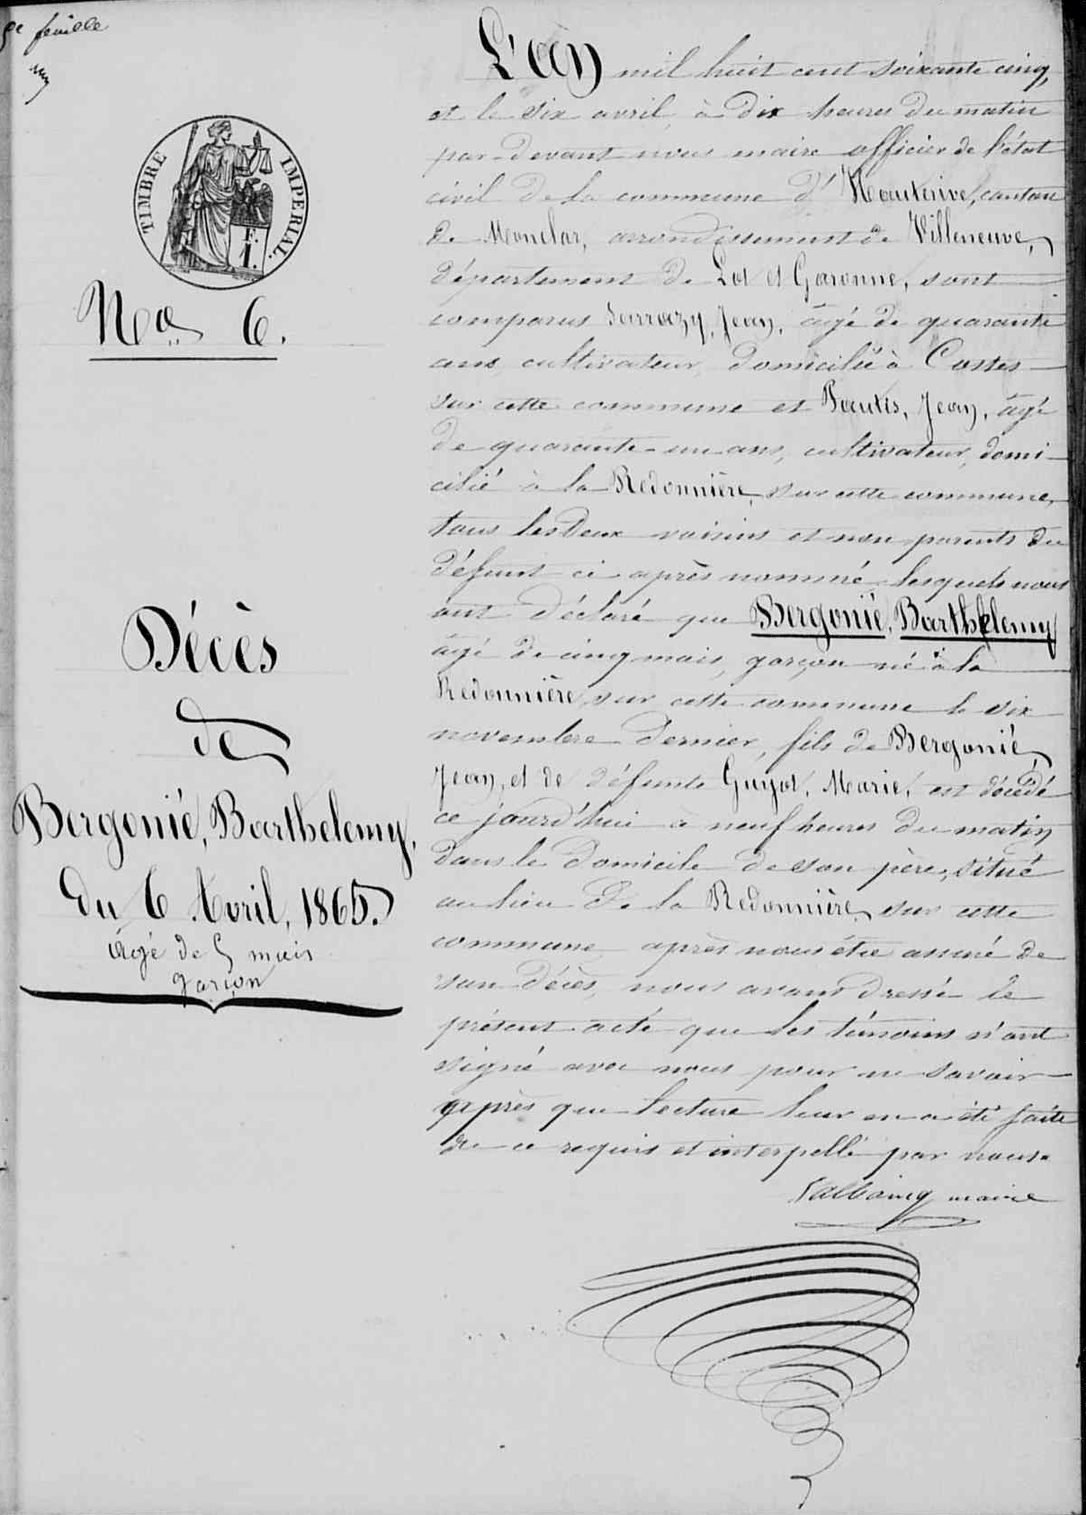 feuille
TIMBRE IMPERIAL.
F. 1.
No. 6.
Décès
de
Bergonié, Barthelemy,
du 6 Avril, 1865.
âgé de 5 mois
garçon
L'an mil huit cent soixante cinq,
et le six avril, à dix heures du matin
par-devant nous maire officier de l'état
civil de la commune d'Hauterive, canton
de Monclar, arrondissement de Villeneuve,
département de Lot et Garonne, sont
comparus Sarrazy, Jean, âgé de quarante
ans, cultivateur, domicilié à Costes
sur cette commune et Bautis, Jean, âgé
de quarante-un ans, cultivateur, domi-
cilié à la Redonnière, sur cette commune,
tous les deux voisins et non parents du
défunt ci après nommé lesquels nous
ont déclaré que Bergonié, Barthelemy
âgé de cinq mois, garçon né à la
Redonnière, sur cette commune le six
novembre dernier, fils de Bergonié,
Jean, et de défunte Guyot, Marie, est décédé
ce jourd'hui à neuf heures du matin
dans le domicile de son père, situé
au lieu de la Redonnière sur cette
commune après nous être assuré de
son décès, nous avons dressé le
présent acte que les témoins n'ont
signé avec nous pour ne savoir
après que lecture leur en a été faite
de ce requis et interpellé par nous.
maire